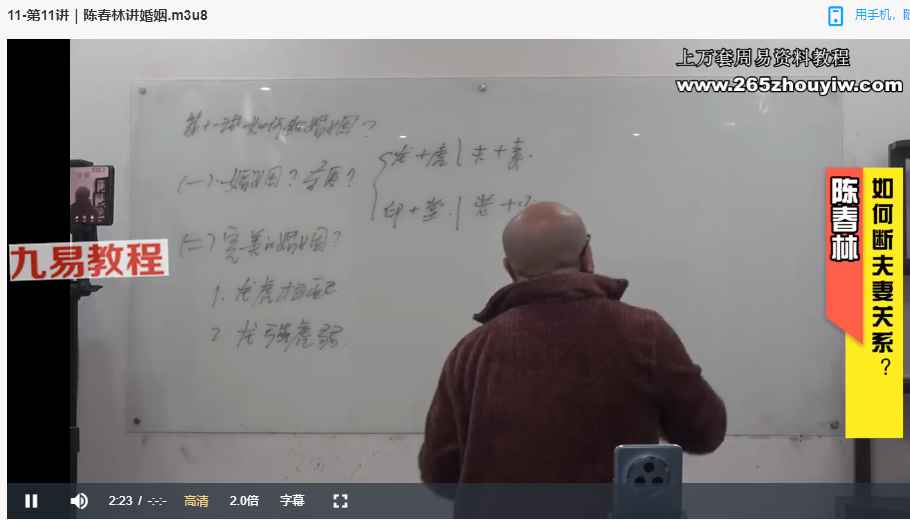 11-第11讲 | 陈春林讲婚姻.m3u8
用手机，
上万套周易资料教程
www.265zhouyiw.com
第十一讲如何断婚姻？
(一)、婚姻图？
龙+虎
夫+妻
印+
(二)完美的婚姻图？
1. 龙虎相配
2 龙强虎弱
九易教程
陈春林
如何断夫妻关系？
2:23 / -:-:-
高清
2.0倍
字幕